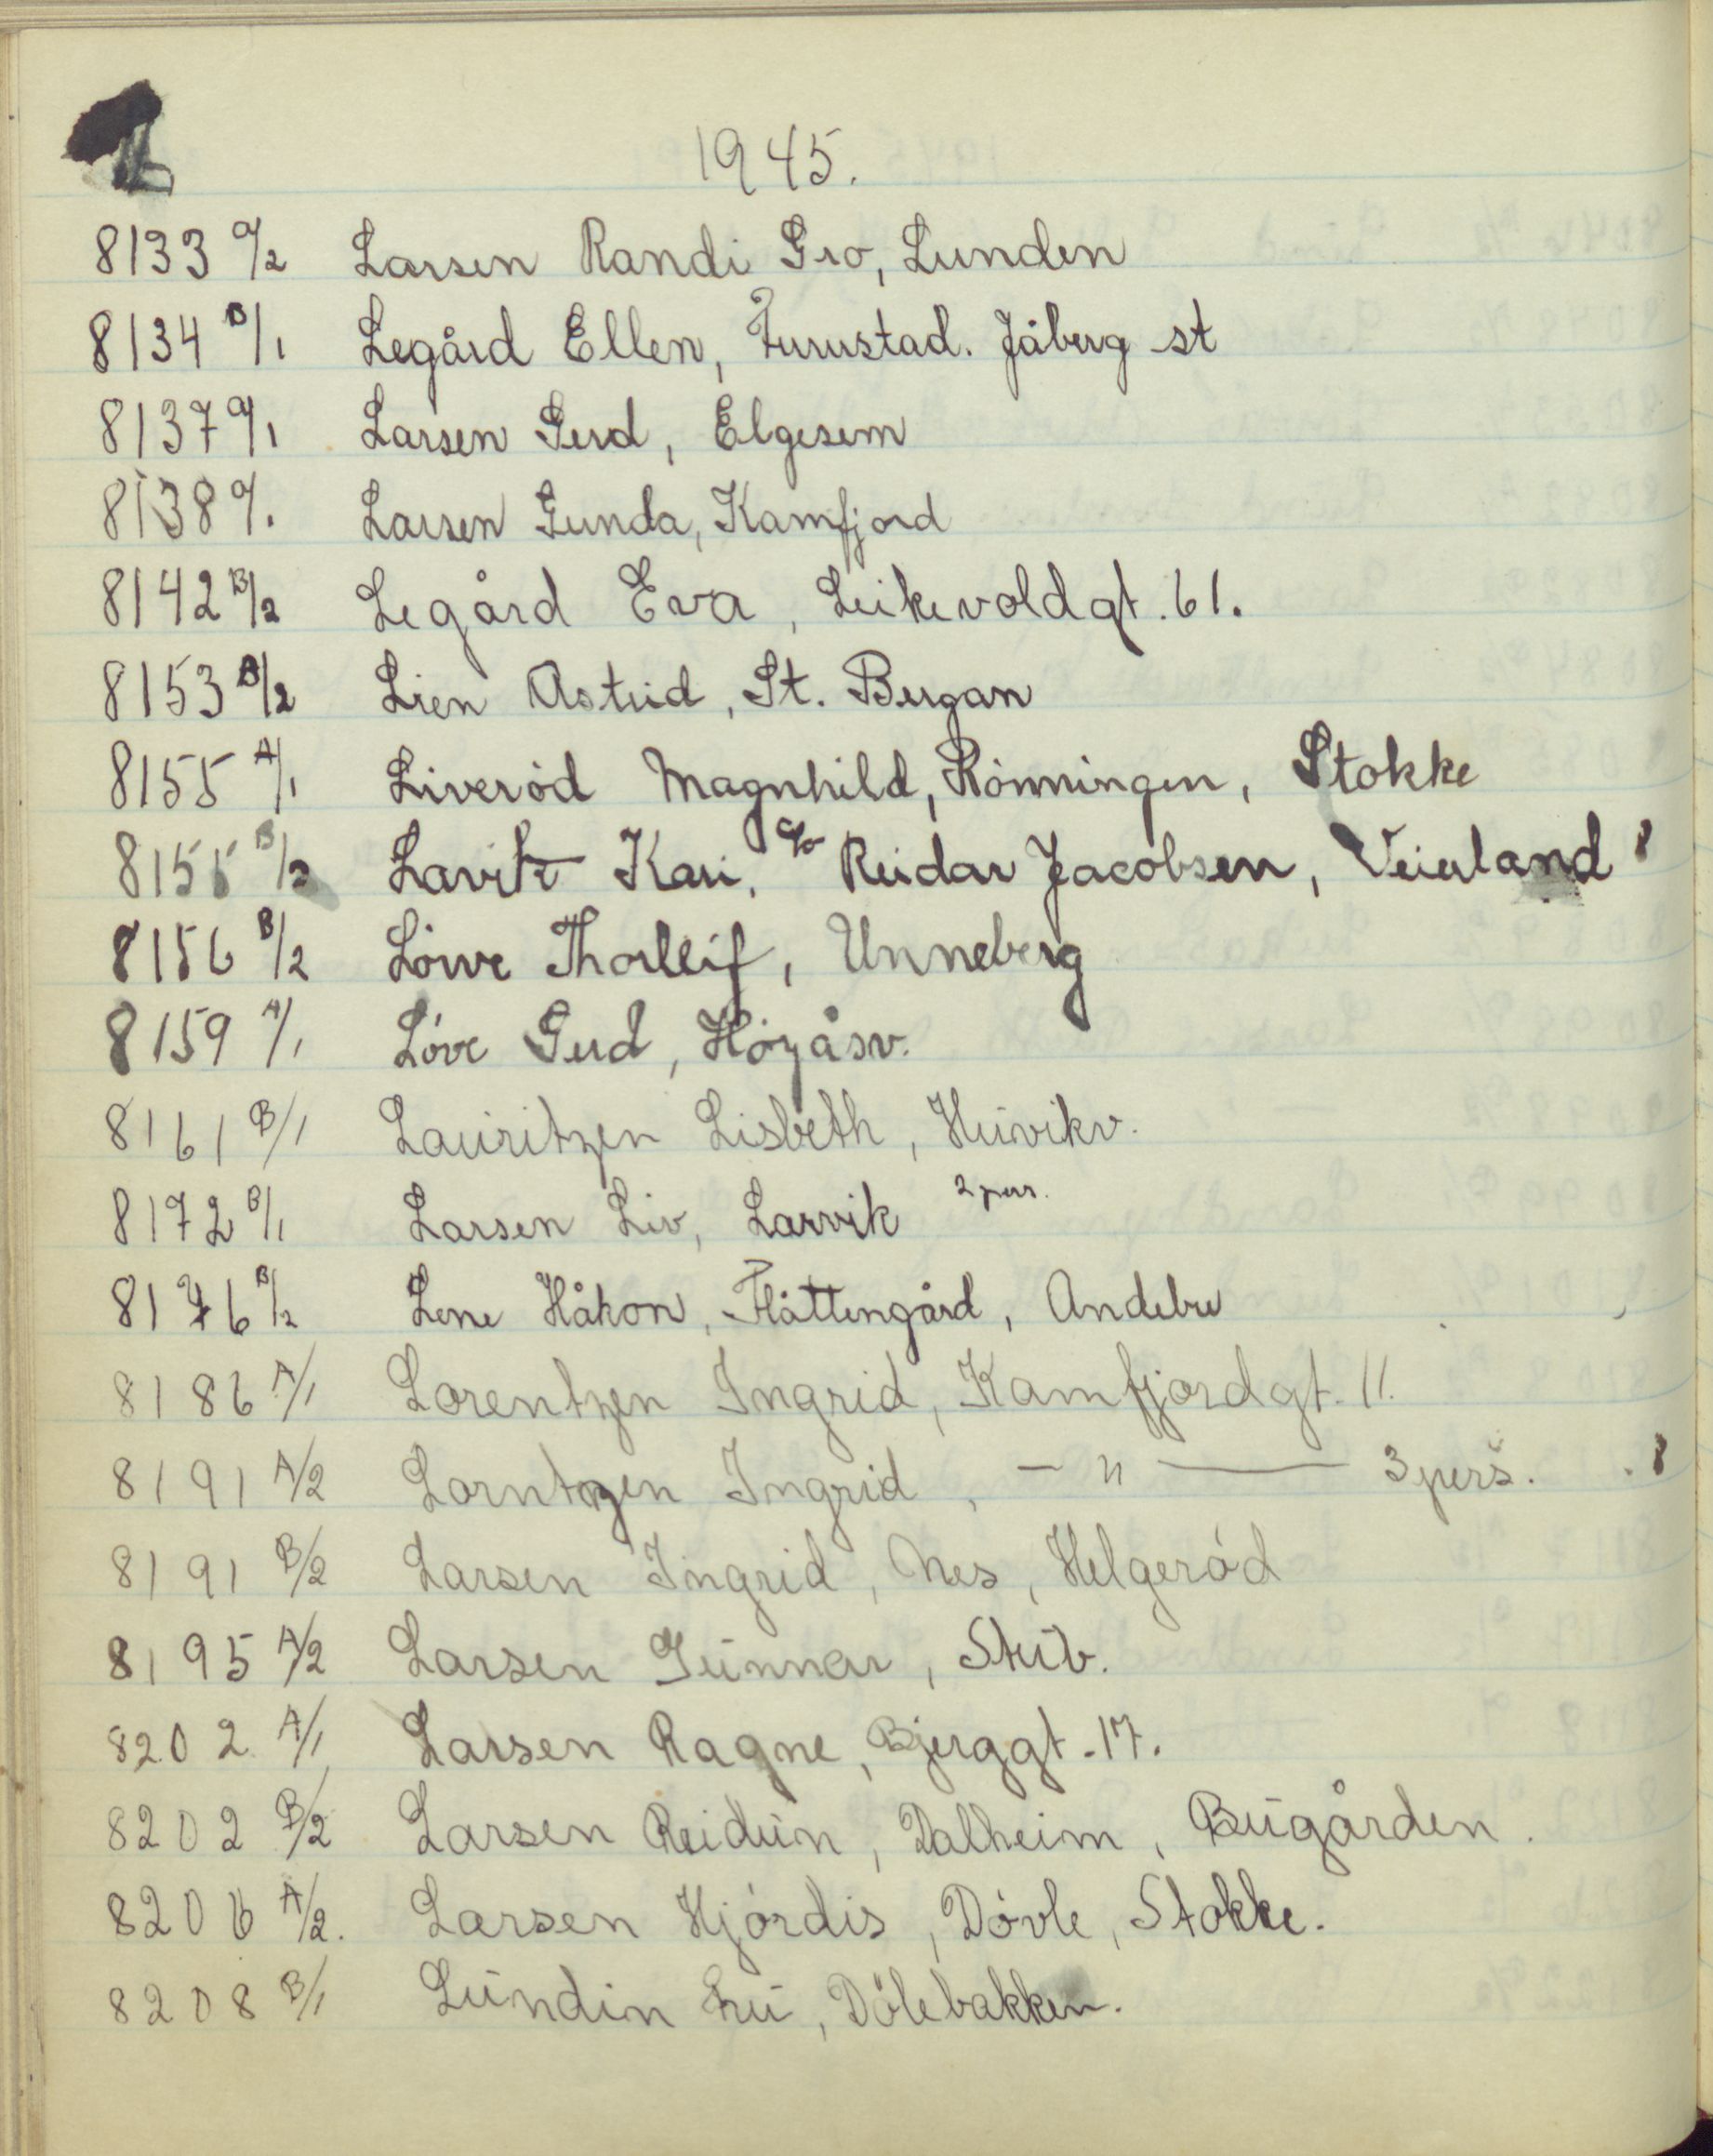 L
1945.
8133 a/2 Larsen Randi Gro, Lunden
8134 B/1 Legård Ellen, Furustad. Jåberg st
8137 a/1 Larsen Gerd, Elgesem
8138 a/1 Larsen Gunda, Kamfjord
8142 B/2 Legård Eva, Leikevoldgt. 61.
8153 B/2 Lien Astrid, St. Bergan
8155 A/1 Liveröd Magnhild, Rönningen, Stokke
8155 B/2 Lavik Kari, c/o Reidar Jacobsen, Veierland
8156 B/2 Löwe Thorleif, Unneberg
8159 A/1 Löve Gerd, Högåsv.
8161 B/1 Lauritzen Lisbeth, Huvikv.
8172 B/1 Larsen Liv, Larvik 2 pers.
8176 B/2 Lene Håkon, Flåttengård, Andebu
8186 A/1 Lorentzen Ingrid, Kamfjordgt. 11.
8191 A/2 Lorntzen Ingrid, — " — 3 pers.
8191 B/2 Larsen Ingrid, Nes, Helgeröd
8195 A/2 Larsen Gunnar, Stub.
8202 A/1 Larsen Ragne, Bjerggt. 17.
8202 B/2 Larsen Reidun, Dalheim, Bugården.
8206 A/2. Larsen Hjördis, Dövle, Stokke.
8208 B/1 Lundin fru, Dölebakken.